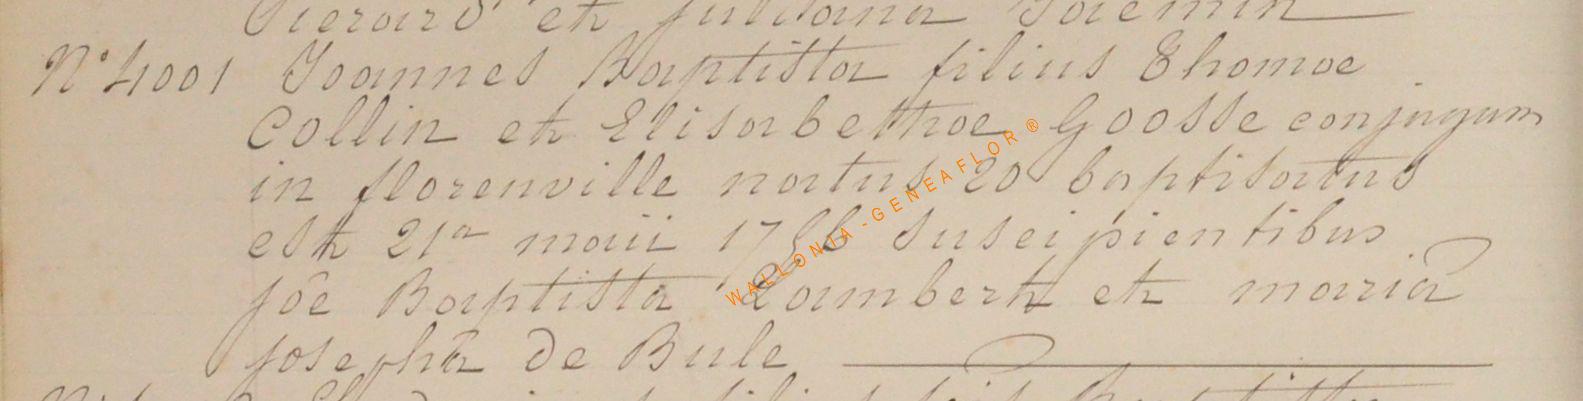 Pierard et juliana Jacmin
N° 4001 Joannes Baptista filius Thomae
Collin et Elisabethae Goosse conjugum
in florenville natus 20 baptisatus
est 21a maii 1756 suscipientibus
jôe Baptista Lambert et maria
josepha de Bule
WALLONIA-GENEAFLOR®